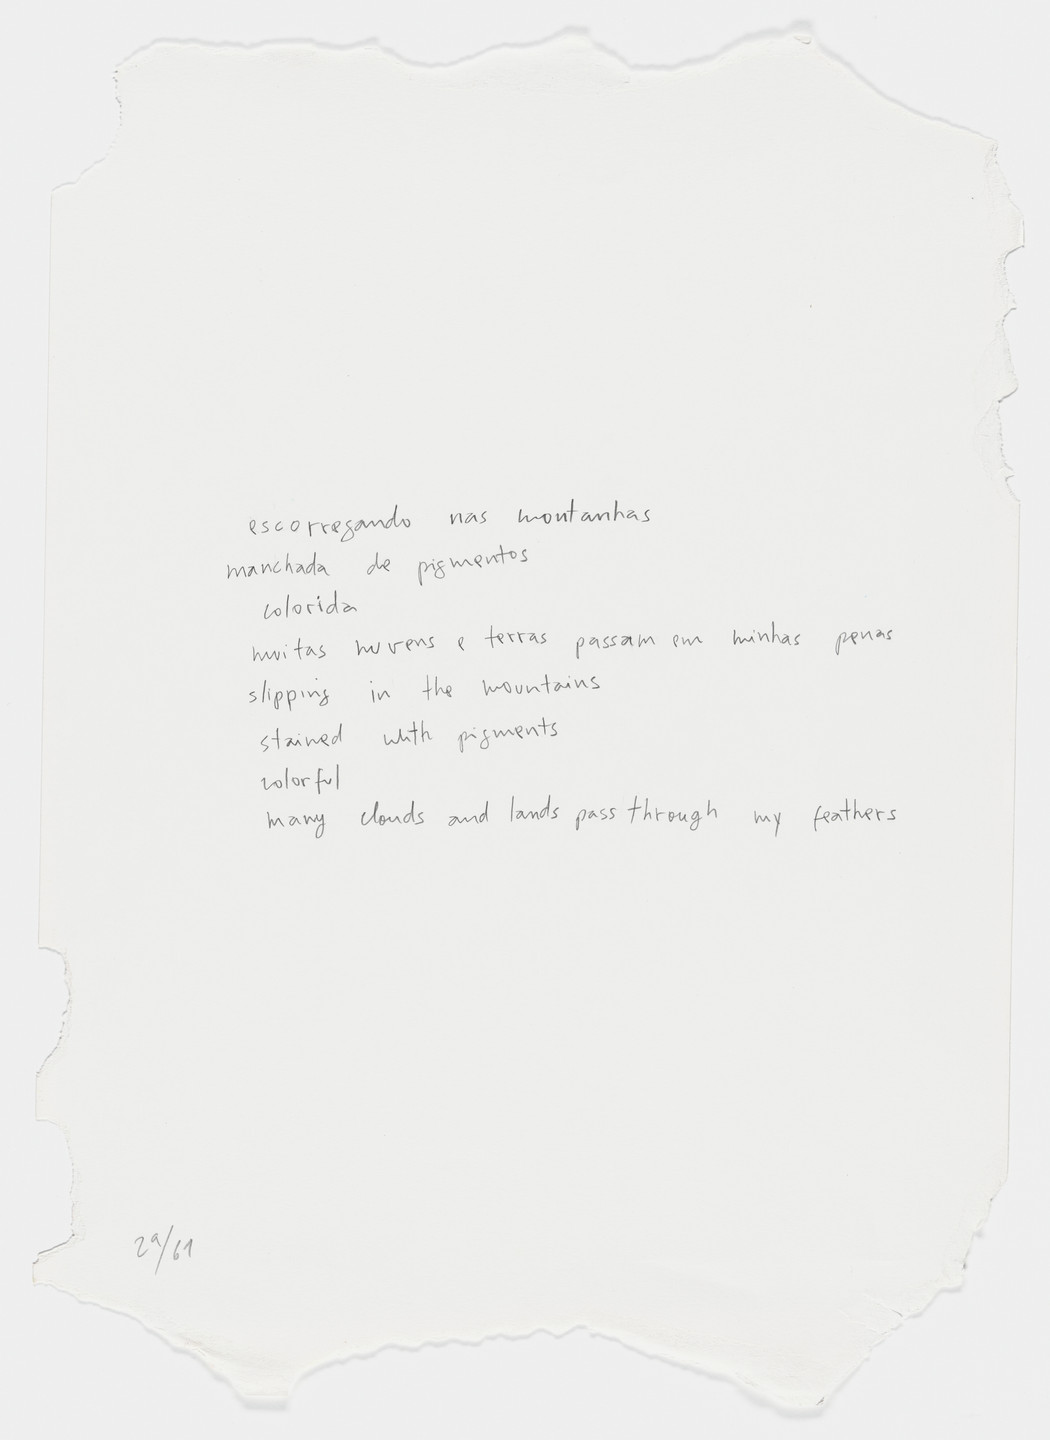 escorregando nas montanhas
manchada de pigmentos
colorida
muitas nuvens e terras passam em minhas penas
slipping in the mountains
stained with pigments
colorful
many clouds and lands pass through my feathers
29/61